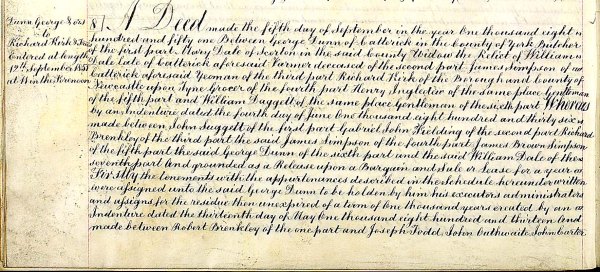 Dunn George & ors
to
Richard Kirk & ors
Entered at length
12th September 1851
at 11 in the Forenoon
87 A Deed made the fifth day of September in the year One thousand eight
hundred and fifty one Between George Dunn of Catterick in the County of York Butcher
of the first part Mary Dale of Scorton in the said County Widow the Relict of William
Dale late of Catterick aforesaid Farmer deceased of the second part James Simpson of
Catterick aforesaid Yeoman of the third part Richard Kirk of the Borough and County of
Newcastle upon Tyne Grocer of the fourth part Henry Ingledew of the same place Gentleman
of the fifth part and William Daggett of the same place Gentleman of the sixth part Whereas
by an Indenture dated the fourth day of June One thousand eight hundred and thirty six
made between John Suggett of the first part Gabriel John Fielding of the second part Richard
Brenkley of the third part the said James Simpson of the fourth part James Brown Simpson
of the fifth part the said George Dunn of the sixth part and the said William Dale of the
seventh part (and grounded as a Release upon a Bargain and Sale or Lease for a year
Firstly the tenements with the appurtenances described in the Schedule hereunder written
were assigned unto the said George Dunn to be holden by him his executors administrators
and assigns for the residue then unexpired of a term of One thousand years created by an
Indenture dated the thirteenth day of May One thousand eight hundred and thirteen And
made between Robert Brenkley of the one part and Joseph Todd, John Outhwaite, John Carter